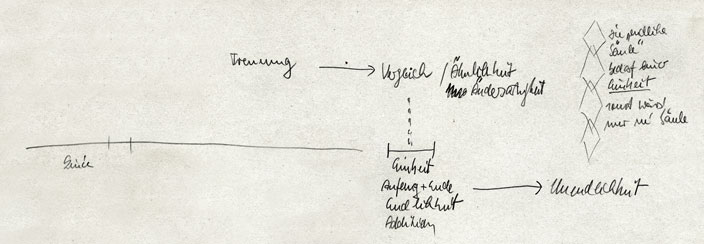 Trennung
Vergleich / Ähnlichkeit
Andersartigkeit
Linie
Einheit
Anfang + Ende
Endlichkeit
Addition
Unendlichkeit
die "endliche
Säule"
bedarf einer
Einheit
sonst wird
nur ne Säule